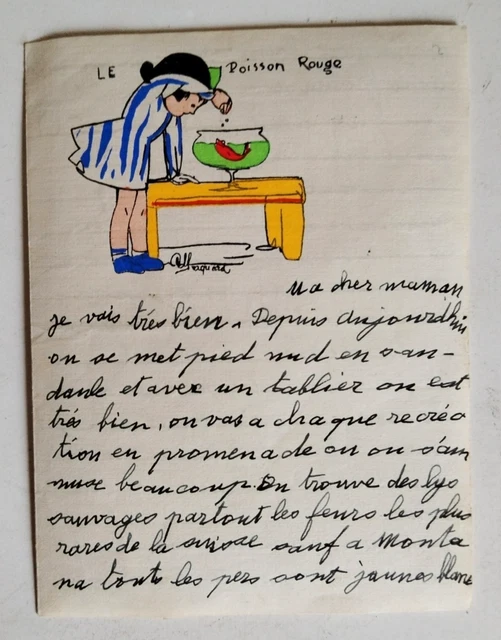 LE Poisson Rouge
Ma cher maman
je vais très bien. Depuis aujourdhui
on se met pied nud en san-
dale et avec un tablier on est
très bien, on vas a chaque recréa
tion en promenade ou on s'am
muse beaucoup. On trouve des lys
sauvages partout les feurs les plus
rares de la suisse sauf a Monta
na touts les pers sont jaunes blanc